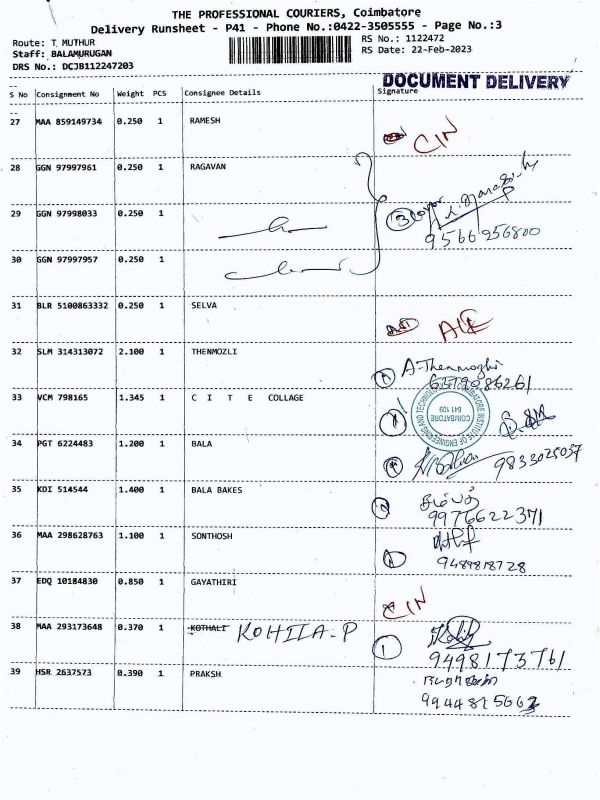 THE PROFESSIONAL COURIERS, Coimbatore
Delivery Runsheet - P41 - Phone No.:0422-3505555 - Page No.:3
Route: T MUTHUR
RS No.: 1122472
Staff: BALAMURUGAN
RS Date: 22-Feb-2023
DRS No.: DCJB112247203
DOCUMENT DELIVERY
S No Consignment No Weight PCS Consignee Details Signature
27 MAA 859149734 0.250 1 RAMESH CIN
28 GGN 97997961 0.250 1 RAGAVAN
29 GGN 97998033 0.250 1 3
9566956800
30 GGN 97997957 0.250 1
31 BLR 5100863332 0.250 1 SELVA
32 SLM 314313072 2.100 1 THENMOZLI A-Thenmozhi
6379086261
33 VCM 798165 1.345 1 C I T E COLLAGE
COIMBATORE INSTITUTE OF ENGINEERING AND TECHNOLOGY
COIMBATORE
641 109
34 PGT 6224483 1.200 1 BALA
9833025037
35 KDI 514544 1.400 1 BALA BAKES
9976622371
36 MAA 298628763 1.100 1 SONTHOSH
9489818728
37 EDQ 10184830 0.850 1 GAYATHIRI CIN
38 MAA 293173648 0.370 1 KOTHALI KOHILA-P 1
9498173761
39 HSR 2637573 0.390 1 PRAKSH
9944815663